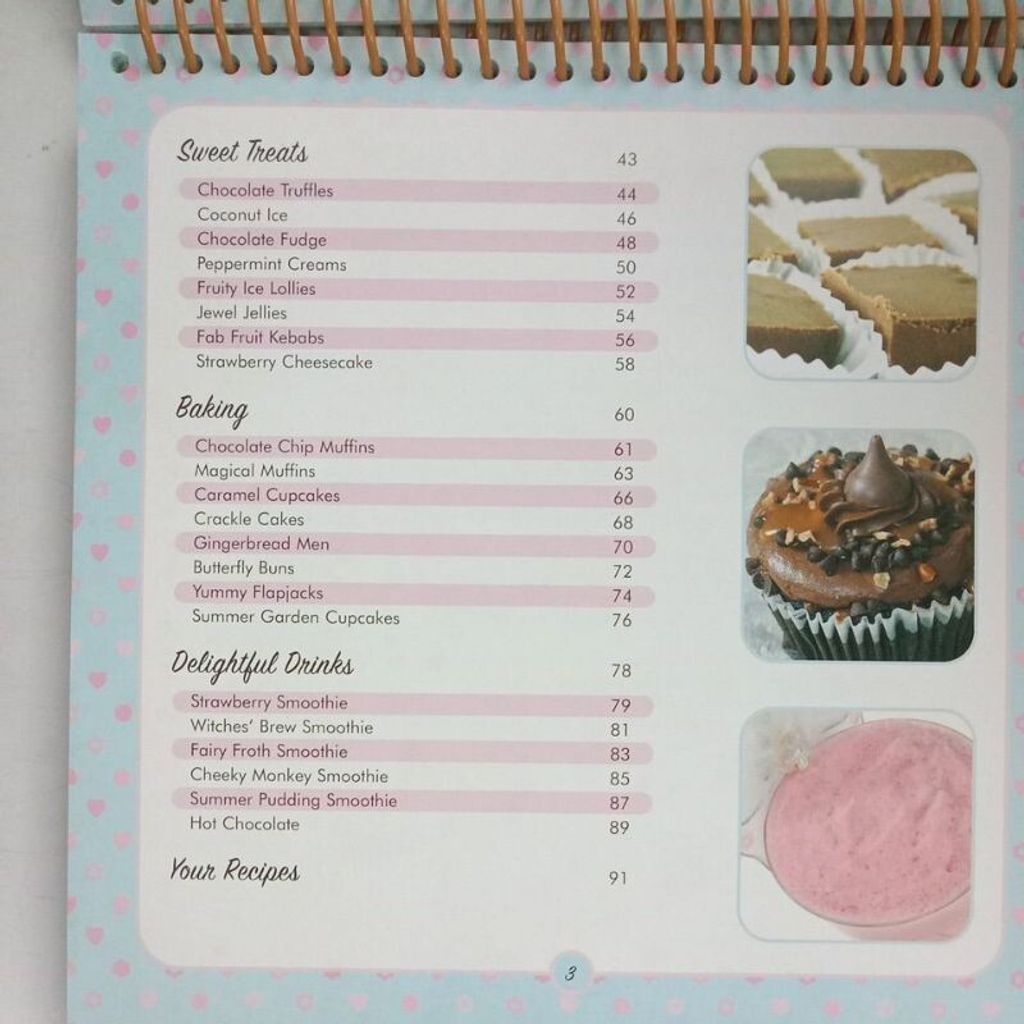 Sweet Treats 43
Chocolate Truffles 44
Coconut Ice 46
Chocolate Fudge 48
Peppermint Creams 50
Fruity Ice Lollies 52
Jewel Jellies 54
Fab Fruit Kebabs 56
Strawberry Cheesecake 58
Baking 60
Chocolate Chip Muffins 61
Magical Muffins 63
Caramel Cupcakes 66
Crackle Cakes 68
Gingerbread Men 70
Butterfly Buns 72
Yummy Flapjacks 74
Summer Garden Cupcakes 76
Delightful Drinks 78
Strawberry Smoothie 79
Witches' Brew Smoothie 81
Fairy Froth Smoothie 83
Cheeky Monkey Smoothie 85
Summer Pudding Smoothie 87
Hot Chocolate 89
Your Recipes 91
3